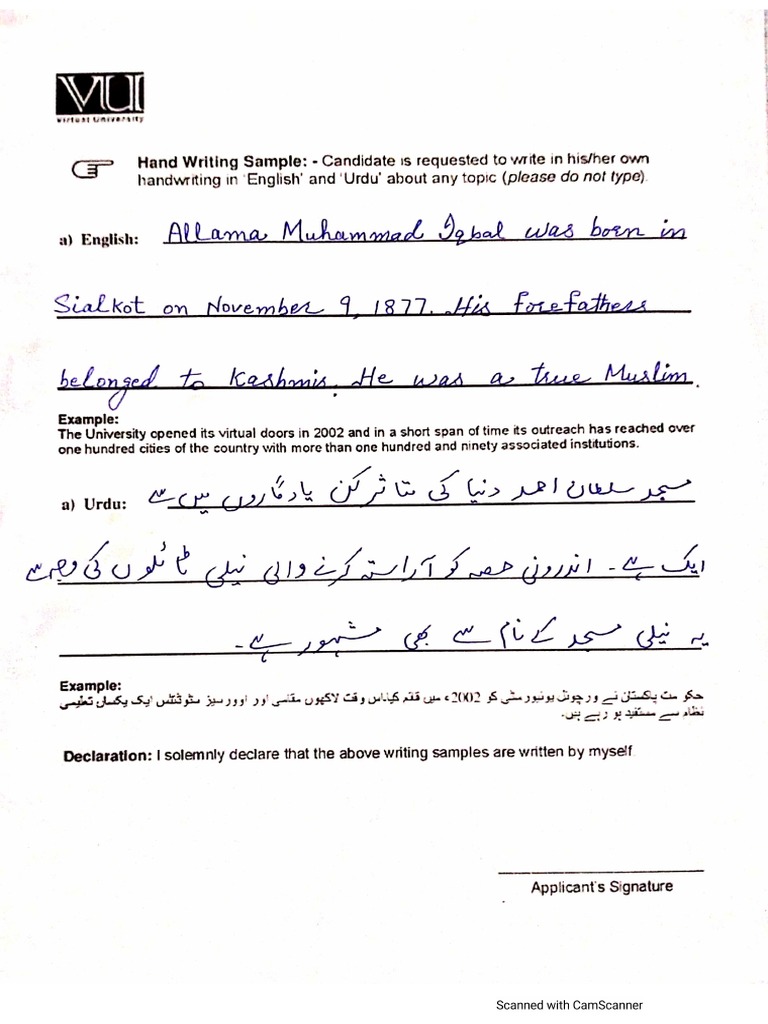 VU
Virtual University
Hand Writing Sample: - Candidate is requested to write in his/her own
handwriting in 'English' and 'Urdu' about any topic (please do not type).
a) English: Allama Muhammad Iqbal was born in
Sialkot on November 9, 1877. His forefathers
belonged to Kashmir. He was a true Muslim.
Example:
The University opened its virtual doors in 2002 and in a short span of time its outreach has reached over
one hundred cities of the country with more than one hundred and ninety associated institutions.
a) Urdu: مسجد سلطان احمد دنیا کی متاثر کن یادگاروں میں سے
ایک ہے۔ اندرونی حصہ کو آراستہ کرنے والی نیلی ٹائلوں کی وجہ سے
یہ نیلی مسجد کے نام سے بھی مشہور ہے۔
Example:
حکومت پاکستان نے ورچوئل یونیورسٹی کو 2002ء میں قائم کیا۔اس وقت لاکھوں مقامی اور اوورسیز سٹوڈنٹس ایک یکساں تعلیمی
نظام سے مستفید ہو رہے ہیں۔
Declaration: I solemnly declare that the above writing samples are written by myself.
Applicant's Signature
Scanned with CamScanner